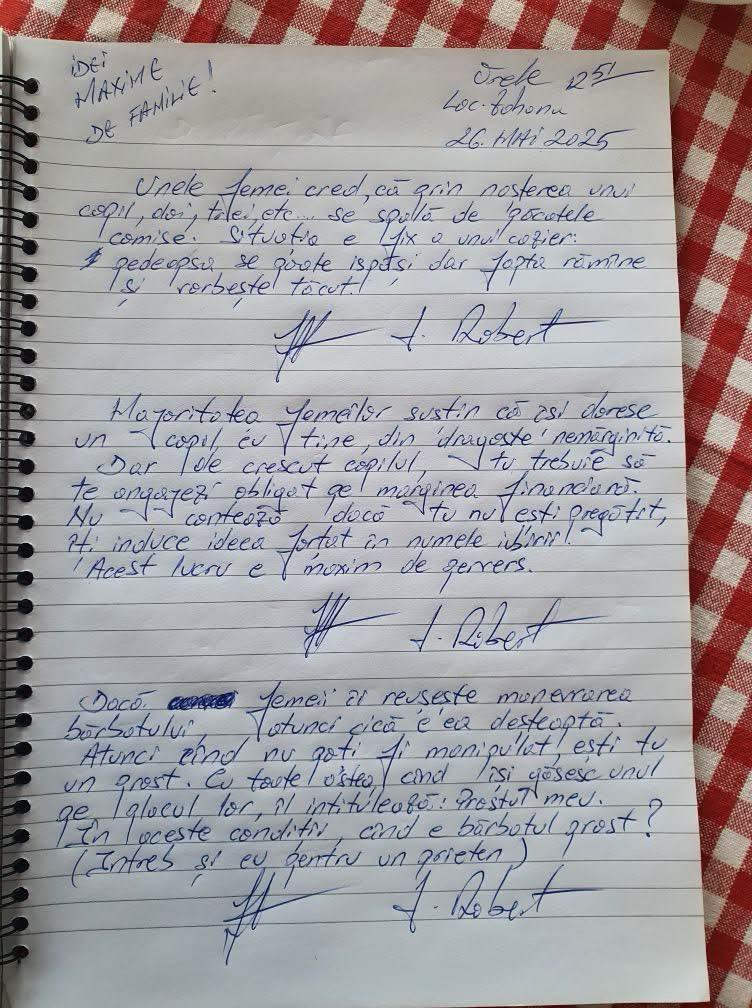 IDEI
MAXIME
DE FAMILIE!
Orele 12 51
Loc. Zohanu
26. MAI 2025
Unele femei cred, că prin nașterea unui
copil, doi, trei, etc... se spală de păcatele
comise. Situația e fix a unui cazier:
pedeapsa se poate ispăși dar fapta rămîne
și vorbește tăcut!
J. Robert
Majoritatea femeilor susțin că își doresc
un copil cu tine, din dragoste nemărginită.
Dar de crescut copilul, tu trebuie să
te angajezi obligat pe marginea financiară.
Nu contează dacă tu nu ești pregătit,
îți induce ideea forțat în numele iubirii!
Acest lucru e maxim de pervers.
J. Robert
Dacă femeii îi reușește manevrarea
bărbatului, atunci cică e ea deșteaptă.
Atunci cînd nu poți fi manipulat, ești tu
un prost. Cu toate astea, cînd își găsesc unul
pe placul lor, îl intitulează: Prostul meu.
În aceste condiții, cînd e bărbatul prost?
(Întreb și eu pentru un prieten)
J. Robert